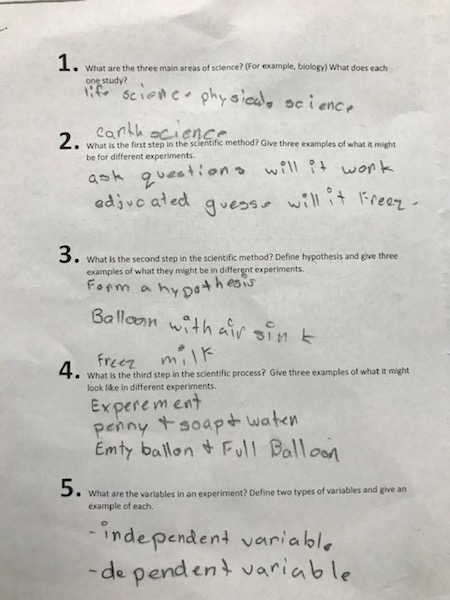 1. What are the three main areas of science? (For example, biology) What does each
one study?
life science physical science
earth science
2. What is the first step in the scientific method? Give three examples of what it might
be for different experiments.
ask questions will it work
adjucated guess will it Freez.
3. What is the second step in the scientific method? Define hypothesis and give three
examples of what they might be in different experiments.
Form a hypothesis
Balloon with air sink
Freez milk
4. What is the third step in the scientific process? Give three examples of what it might
look like in different experiments.
Experement
penny + soap + water
Emty ballon + Full Balloon
5. What are the variables in an experiment? Define two types of variables and give an
example of each.
-independent variable
-dependent variable